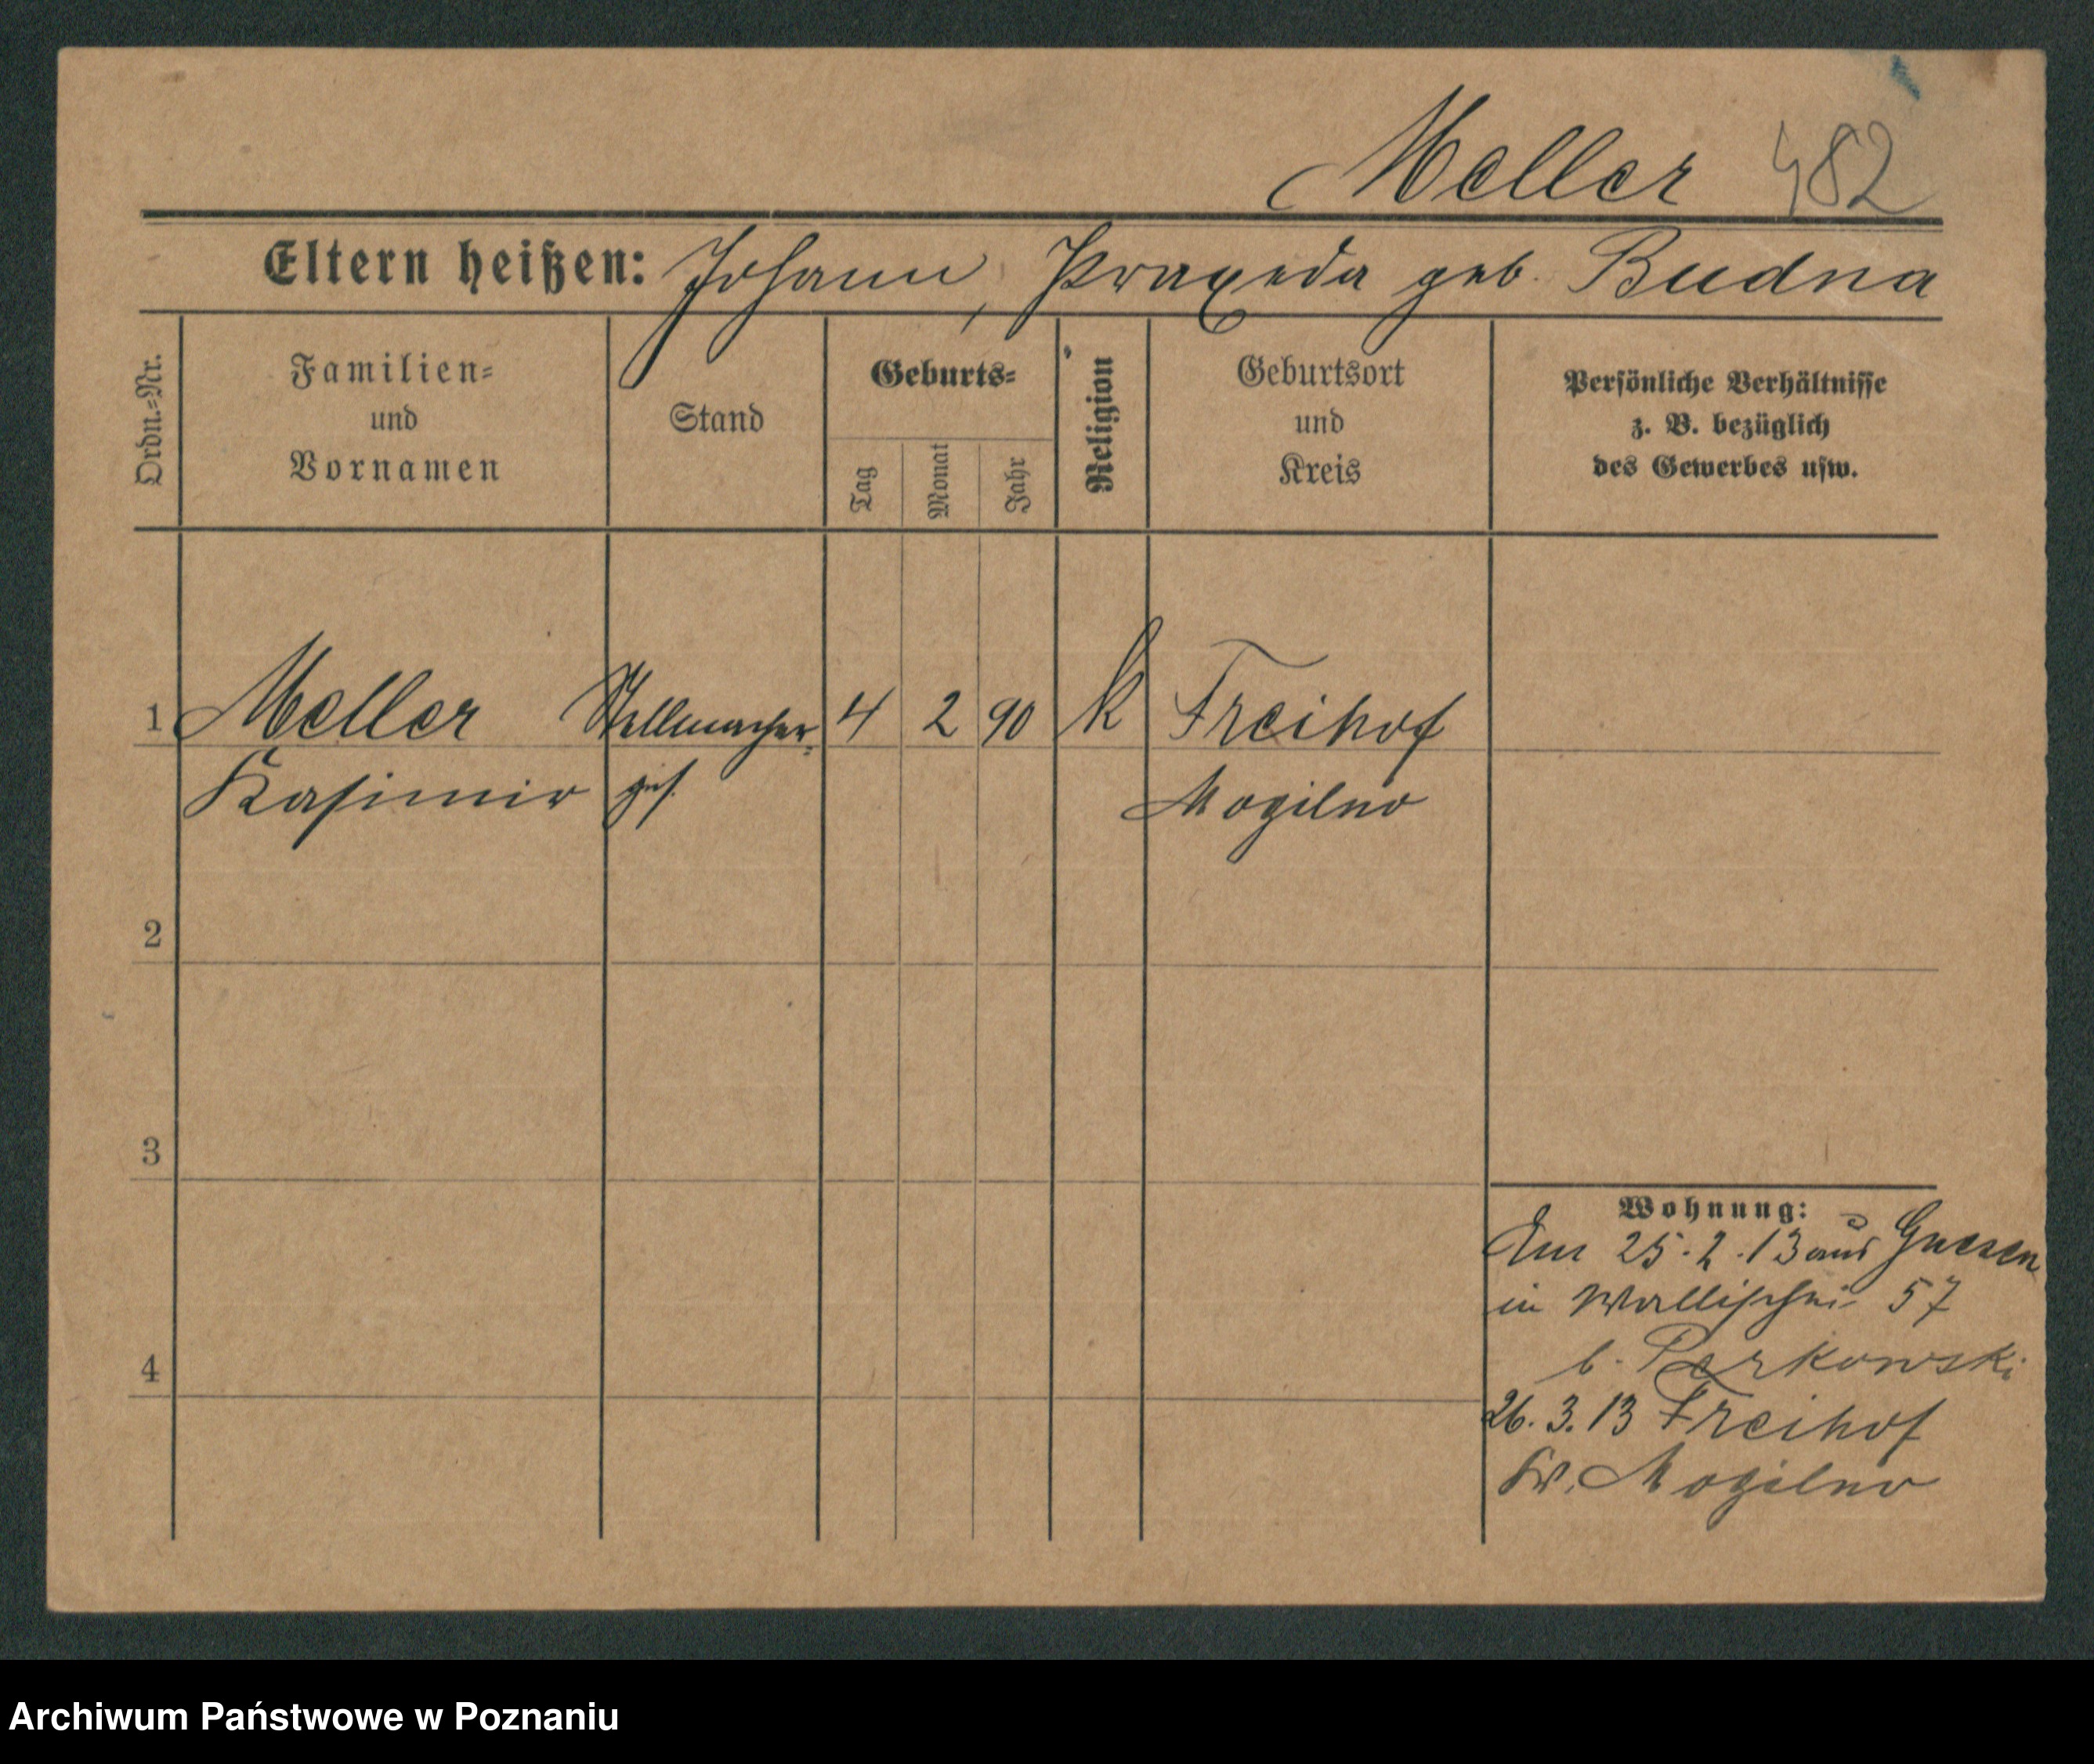 Meller 482
Eltern heißen: Johann, Praxeda geb. Budna
Ordn.=Nr.
Familien=
und
Vornamen
Stand
Geburts=
Tag
Monat
Jahr
Religion
Geburtsort
und
Kreis
Persönliche Verhältnisse
z. B. bezüglich
des Gewerbes usw.
1 Meller Stellmacher- 4 2 90 k Freihof
Kasimir ges. Mogilno
2
3
4
Wohnung:
25.2.13 aus Gnesen
in Wallischei 57
b. Perkowski
26.3.13 Freihof
Kr. Mogilno
Archiwum Państwowe w Poznaniu